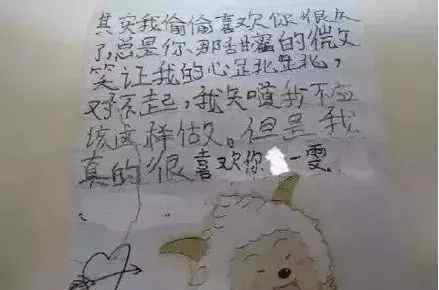 其实我偷偷喜欢你很久
了,总是你那甜的微
笑让我的心
对不起,我我不应
该这样做。但是我
真的很喜欢你一雯